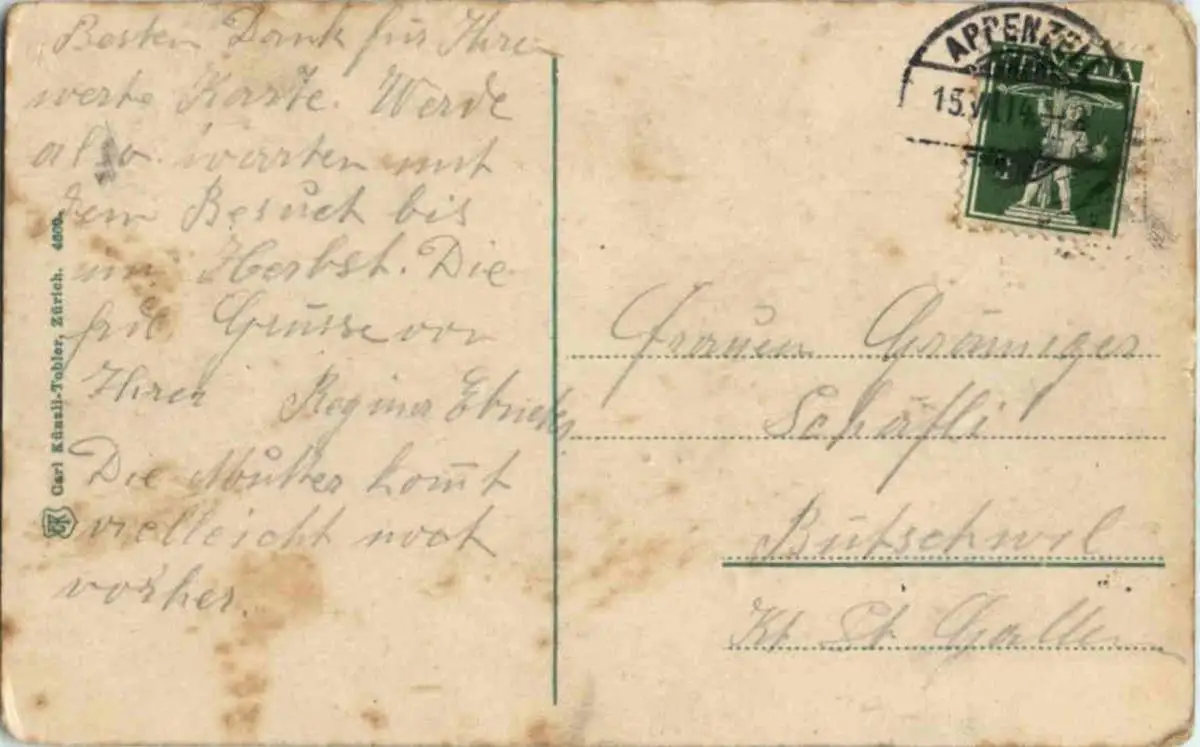 Besten Dank für Ihre
werte Karte. Werde
also warten mit
dem Besuch bis
im Herbst. Die
Grüsse von
Ihrer Regina
Die Mutter kom̅t
vielleicht noch
vorher.
Carl Künzli-Tobler, Zürich. 4600.
APPENZELL
15.VII.14
Frauen Grämiger
Schäfli
Bütschwil
Kt. St. Gallen